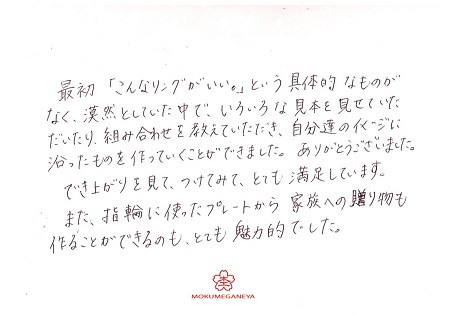 最初「こんなリングがいい。」という具体的なものが
なく、漠然としていた中で、いろいろな見本を見せていた
だいたり、組み合わせを教えていただき、自分達のイメージに
沿ったものを作っていくことができました。ありがとうございました。
でき上がりを見て、つけてみて、とても満足しています。
また、指輪に使ったプレートから家族への贈り物も
作ることができるのも、とても魅力的でした。
MOKUMEGANEYA